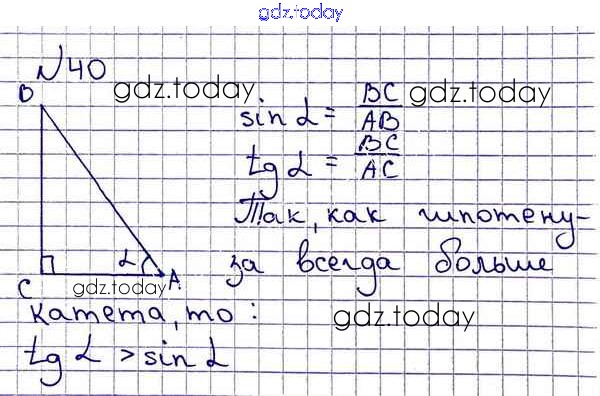 gdz.today
№40
gdz.today
gdz.today
B
sin α = BC/AB
tg α = BC/AC
Так, как гипотену-
за всегда больше
α
A
C
gdz.today
катета, то:
gdz.today
tg α > sin α